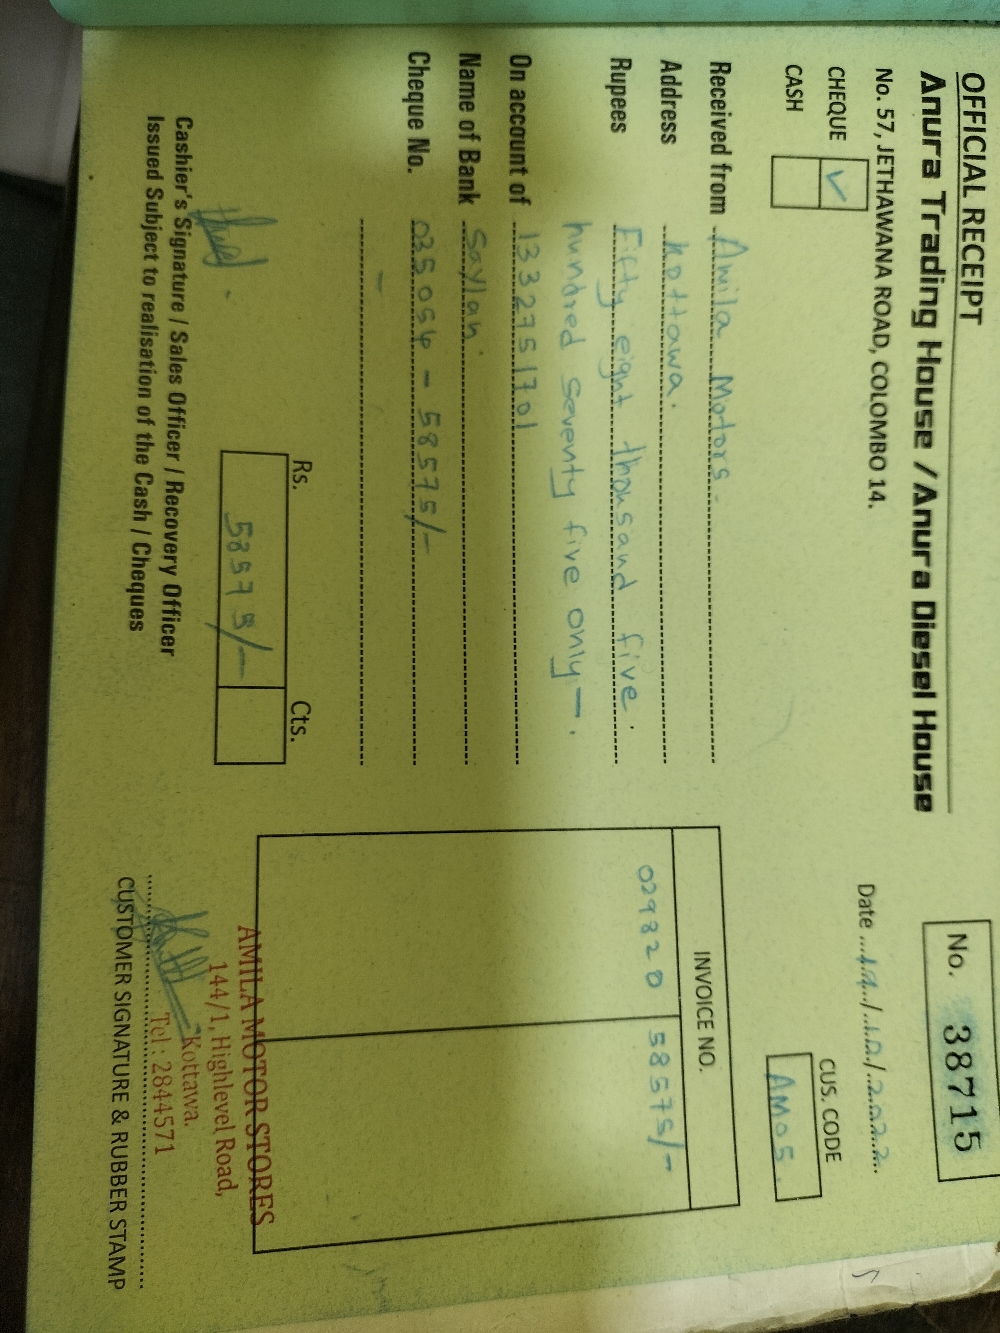 OFFICIAL RECEIPT
Anura Trading House / Anura Diesel House
No. 57, JETHAWANA ROAD, COLOMBO 14.
No. 38715
CHEQUE ✓
CASH
Date 14/10/2022
CUS. CODE
AM05
Received from Amila Motors.
Address Kottawa.
Rupees Fifty eight thousand five
hundred seventy five only —.
On account of 1332751701
Name of Bank Saylan
Cheque No. 035054 - 58575/-
INVOICE NO.
029820 58575/-
Rs. Cts.
58575/-
Cashier's Signature / Sales Officer / Recovery Officer
Issued Subject to realisation of the Cash / Cheques
AMILA MOTOR STORES
144/1, Highlevel Road,
Kottawa.
Tel : 2844571
CUSTOMER SIGNATURE & RUBBER STAMP